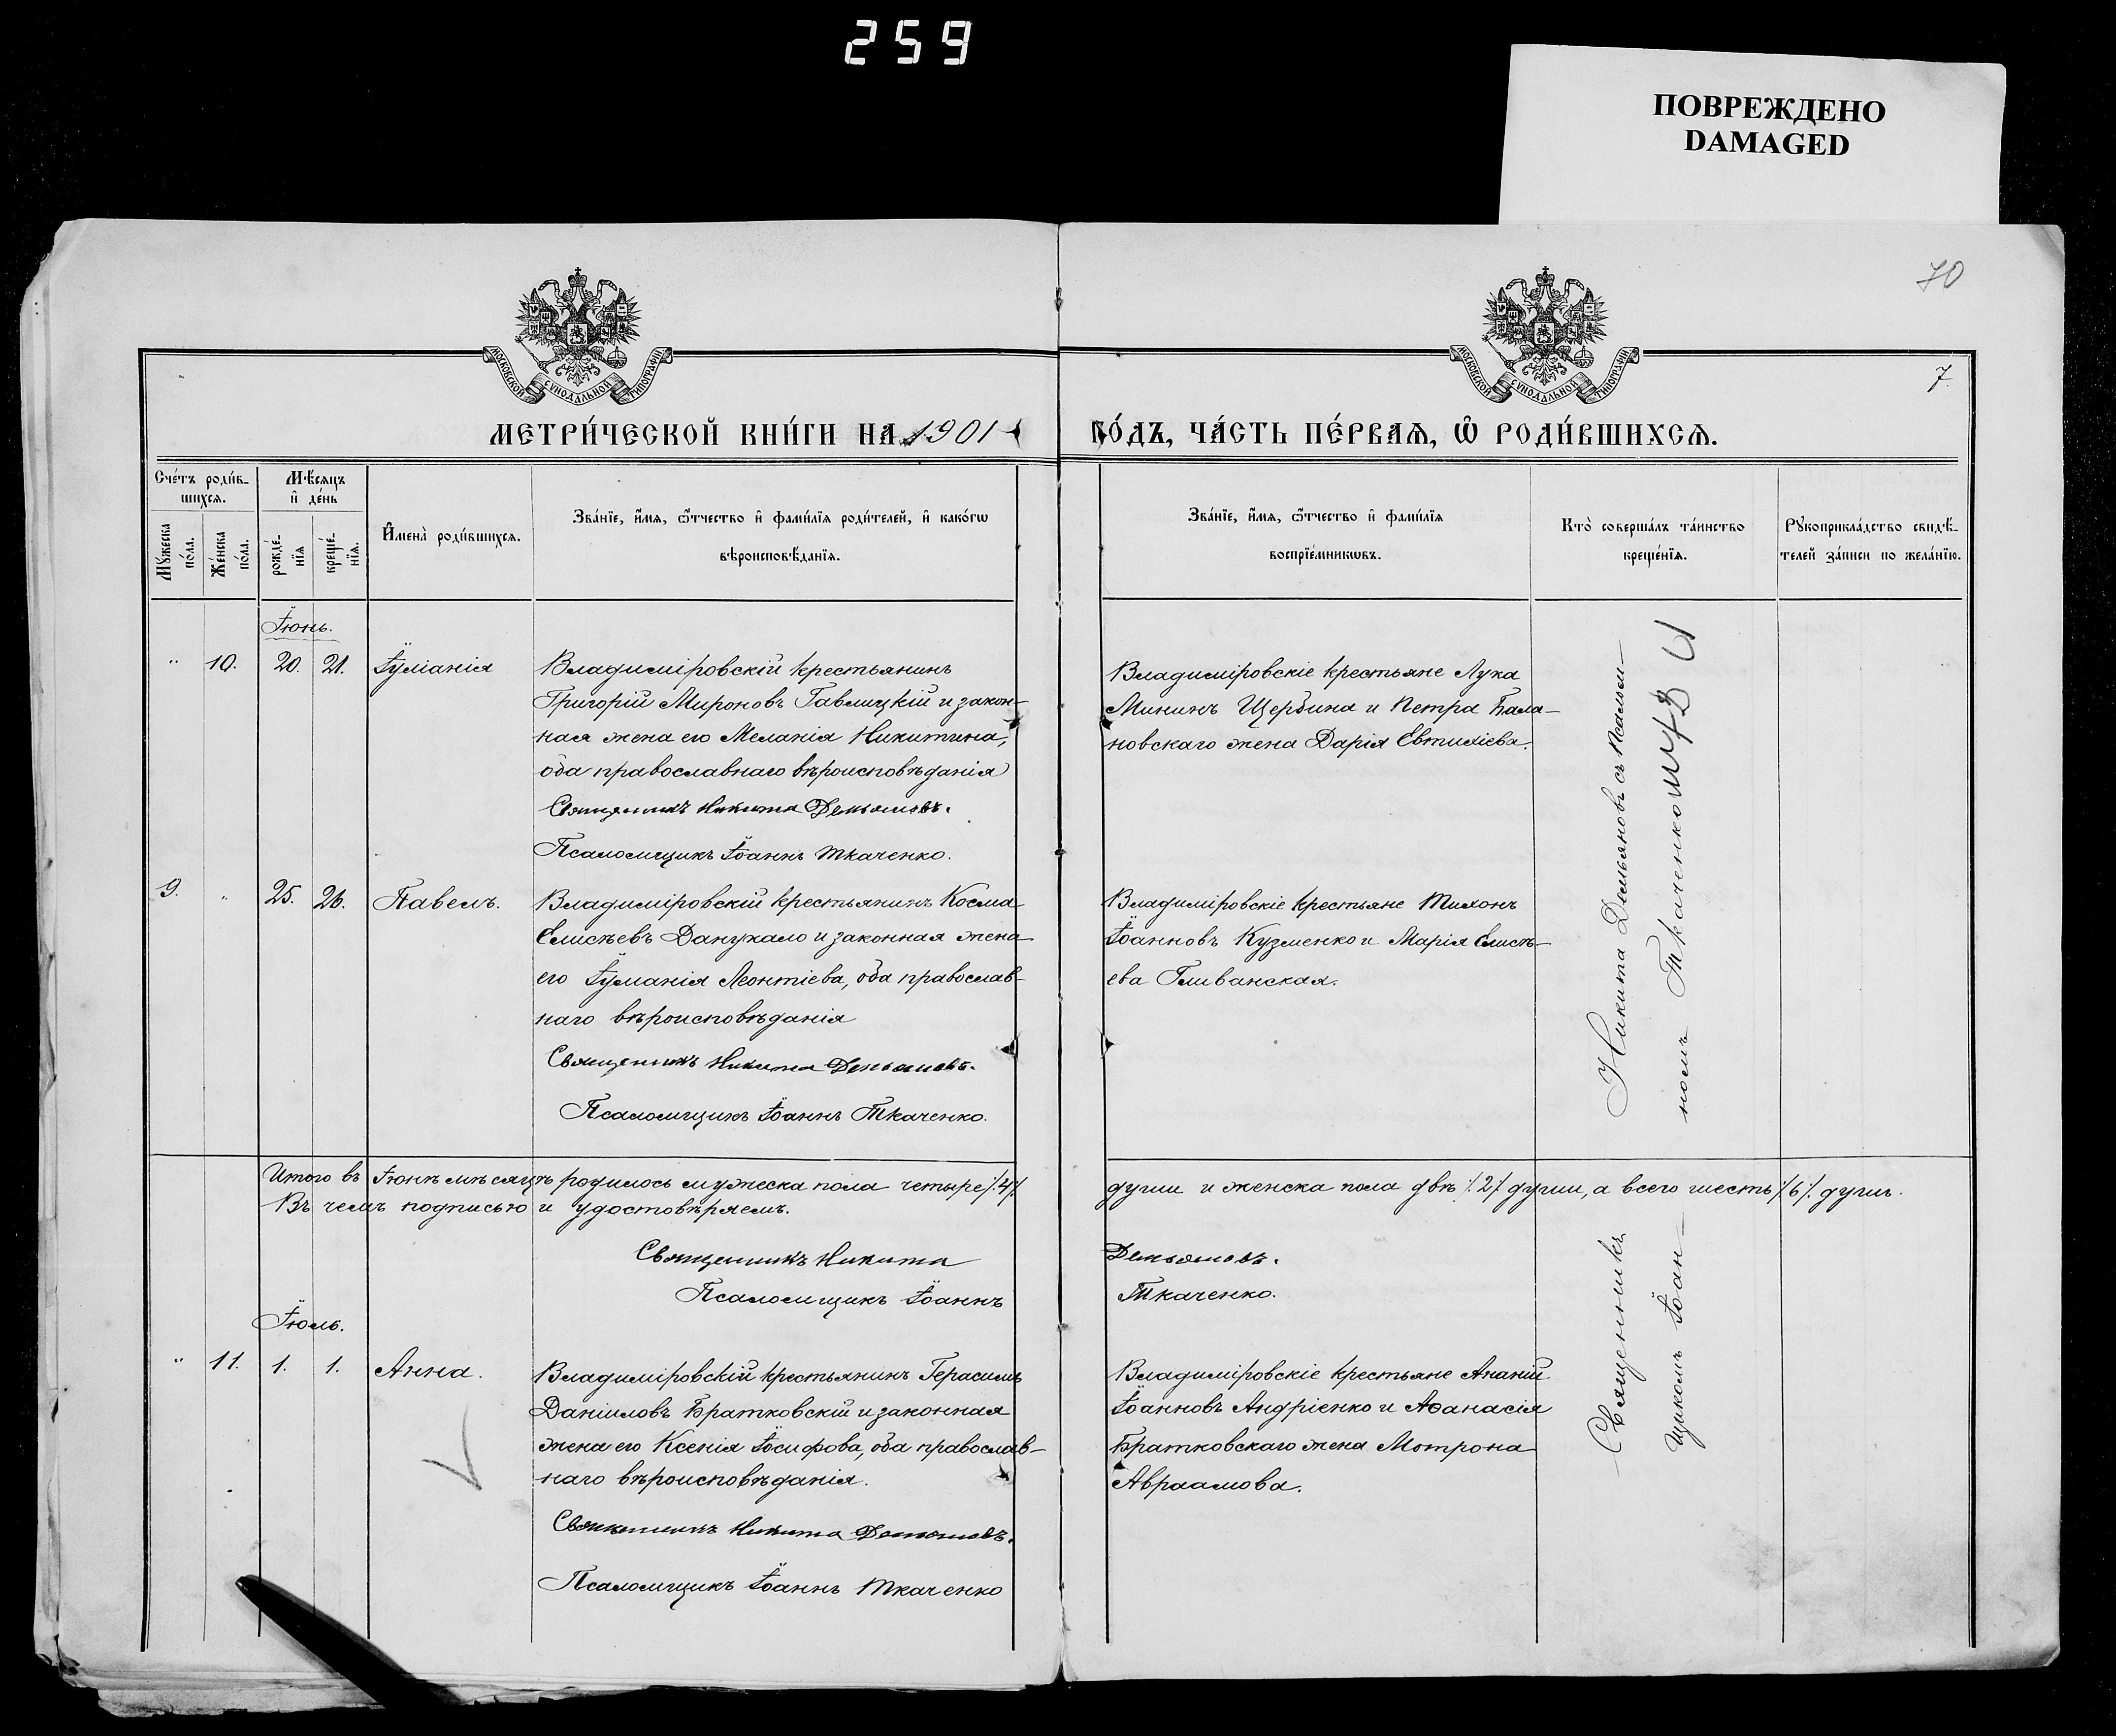 259
ПОВРЕЖДЕНО
DAMAGED
70
7
МОСКОВСКОЙ СѴНОДАЛЬНОЙ ТИПОГРАФІИ
МОСКОВСКОЙ СѴНОДАЛЬНОЙ ТИПОГРАФІИ
МЕТРИ́ЧЕСКОЙ КНИ́ГИ НА 1901
ГО́ДЪ, ЧА́СТЬ ПЕ́РВАѦ, Ѡ҃ РОДИ́ВШИХСѦ.
Сче́тъ роди́в-
шихсѧ.
Мꙋ́жеска по́ла.
Же́нска по́ла.
Мѣ́сѧцъ
и҆ де́нь
рожде́-
нїѧ
креще́-
нїѧ.
И҆мена̀ роди́вшихсѧ.
Зва́нїе, и҆́мѧ, ѻ҆́тчество и҆ фами́лїѧ роди́телей, и҆ како́гѡ
вѣроисповѣ́данїѧ.
Зва́нїе, и҆́мѧ, ѻ҆́тчество и҆ фами́лїѧ
воспрїе́мникѡвъ.
Кто̀ соверша́лъ та́инство
креще́нїѧ.
Рꙋкоприкла́дство свидѣ́-
телей за́писи по жела́нїю.
Іюнь.
" 10. 20. 21. Іуліанія
Владиміровскій крестьянинъ
Григорій Мироновъ Гавлицкій и закон-
ная жена его Меланія Никитина,
оба православнаго вѣроисповѣданія
Священникъ Никита Демьяновъ.
Псаломщикъ Іоаннъ Ткаченко.
Владиміровскіе крестьяне Лука
Мининъ Щербина и Петра Бала-
новскаго жена Дарія Евтихіева.
9. " 25. 26. Павелъ.
Владиміровскій крестьянинъ Косма
Елисѣевъ Данукало и законная жена
его Іуліанія Леонтіева, оба православ-
наго вѣроисповѣданія
Священникъ Никита Демьяновъ.
Псаломщикъ Іоаннъ Ткаченко.
Владиміровскіе крестьяне Тихонъ
Іоанновъ Кузменко и Марія Елисѣ-
ева Гливанская.
Итого въ Іюнѣ мѣсяцѣ родилось мужеска пола четыре /.4/.
души и женска пола двѣ /.2/. души, а всего шесть /.6/. душъ.
Въ чемъ подписью и удостовѣряемъ.
Священникъ Никита
Демьяновъ.
Псаломщикъ Іоаннъ
Ткаченко.
Іюль.
" 11. 1. 1. Анна.
Владиміровскій крестьянинъ Герасимъ
Даніиловъ Братковскій и законная
жена его Ксенія Іосифова, оба православ-
наго вѣроисповѣданія.
Священникъ Никита Демьяновъ.
Псаломщикъ Іоаннъ Ткаченко
Владиміровскіе крестьяне Ананій
Іоанновъ Андріенко и Аѳанасія
Братковскаго жена Мотрона
Авраамова.
Священникъ Никита Демьяновъ съ Псалом-
щикомъ Іоан-
номъ Ткаченкомъ